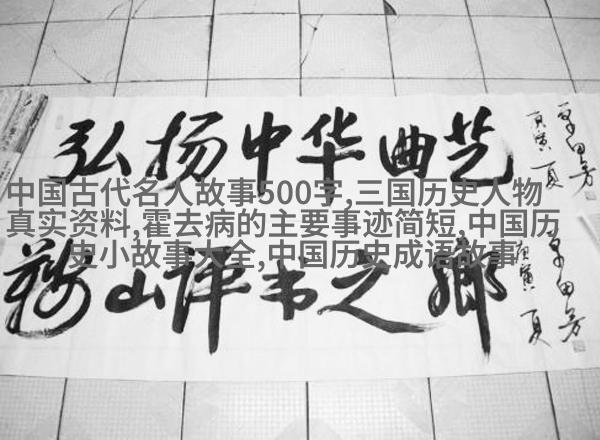 弘扬中华曲艺
庚寅夏
单田芳
中国古代名人故事500字,三国历史人物
真实资料,霍去病的主要事迹简短,中国历
史小故事大全,中国历史成语故事
鞍山评书之乡
庚寅夏
单田芳